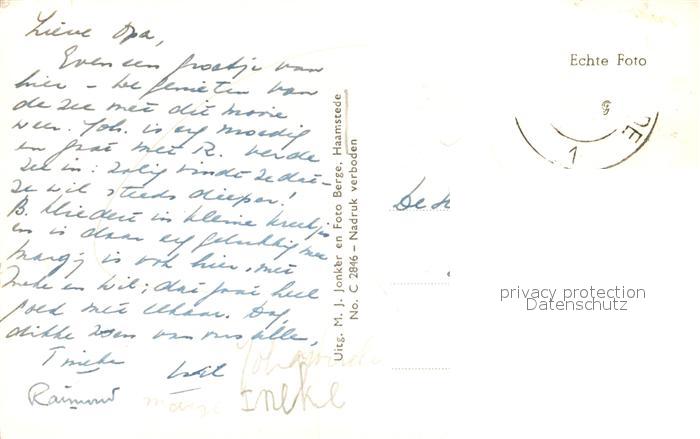 Lieve Opa,
Even een groetje van
hier – we genieten van
de zee met dit mooie
weer. Joh. is erg moedig
en gaat met R. verde
zee in: zalig vindt ze dat –
ze wil steeds dieper!
B. kliedert in kleine kreekjes
en is daar erg gelukkig mee
Margj is ook hier, met
Ineke en Wil; dat gaat heel
goed met elkaar. Dag,
dikke zoen van ons alle,
Tineke Wil Johanneke
Raimond marge Ineke
Uitg. M. J. Jonker en Foto Berge, Haamstede
No. C 2846 – Nadruk verboden
Echte Foto
De
privacy protection
Datenschutz